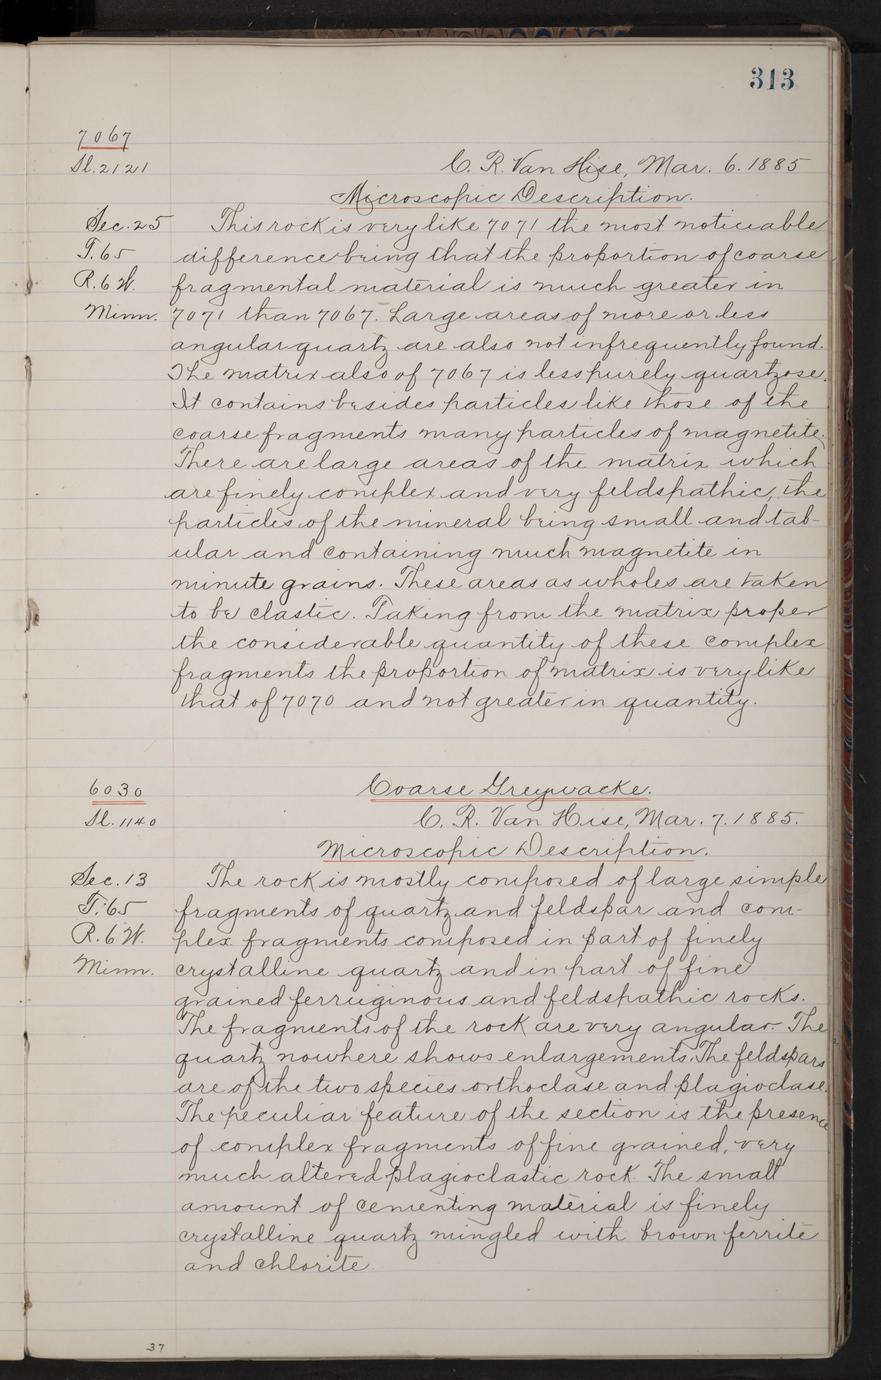 313
7067
Sl. 2121
C. R. Van Hise, Mar. 6. 1885
Microscopic Description.
Sec. 25
T. 65
R. 6 W.
Minn.
This rock is very like 7071 the most noticeable
difference being that the proportion of coarse
fragmental material is much greater in
7071 than 7067. Large areas of more or less
angular quartz are also not infrequently found.
The matrix also of 7067 is less purely quartzose.
It contains besides particles like those of the
coarse fragments many particles of magnetite.
There are large areas of the matrix which
are finely complex and very feldspathic, the
particles of the mineral being small and tab-
ular and containing much magnetite in
minute grains. These areas as wholes are taken
to be clastic. Taking from the matrix proper
the considerable quantity of these complex
fragments the proportion of matrix is very like
that of 7070 and not greater in quantity.
6030
Sl. 1140
Coarse Greywacke.
C. R. Van Hise, Mar. 7. 1885.
Microscopic Description.
Sec. 13
T. 65
R. 6 W.
Minn.
The rock is mostly composed of large simple
fragments of quartz and feldspar and com-
plex fragments composed in part of finely
crystalline quartz and in part of fine
grained ferruginous and feldspathic rocks.
The fragments of the rock are very angular. The
quartz nowhere shows enlargements. The feldspars
are of the two species orthoclase and plagioclase.
The peculiar feature of the section is the presence
of complex fragments of fine grained, very
much altered plagioclastic rock. The small
amount of cementing material is finely
crystalline quartz mingled with brown ferrite
and chlorite.
37